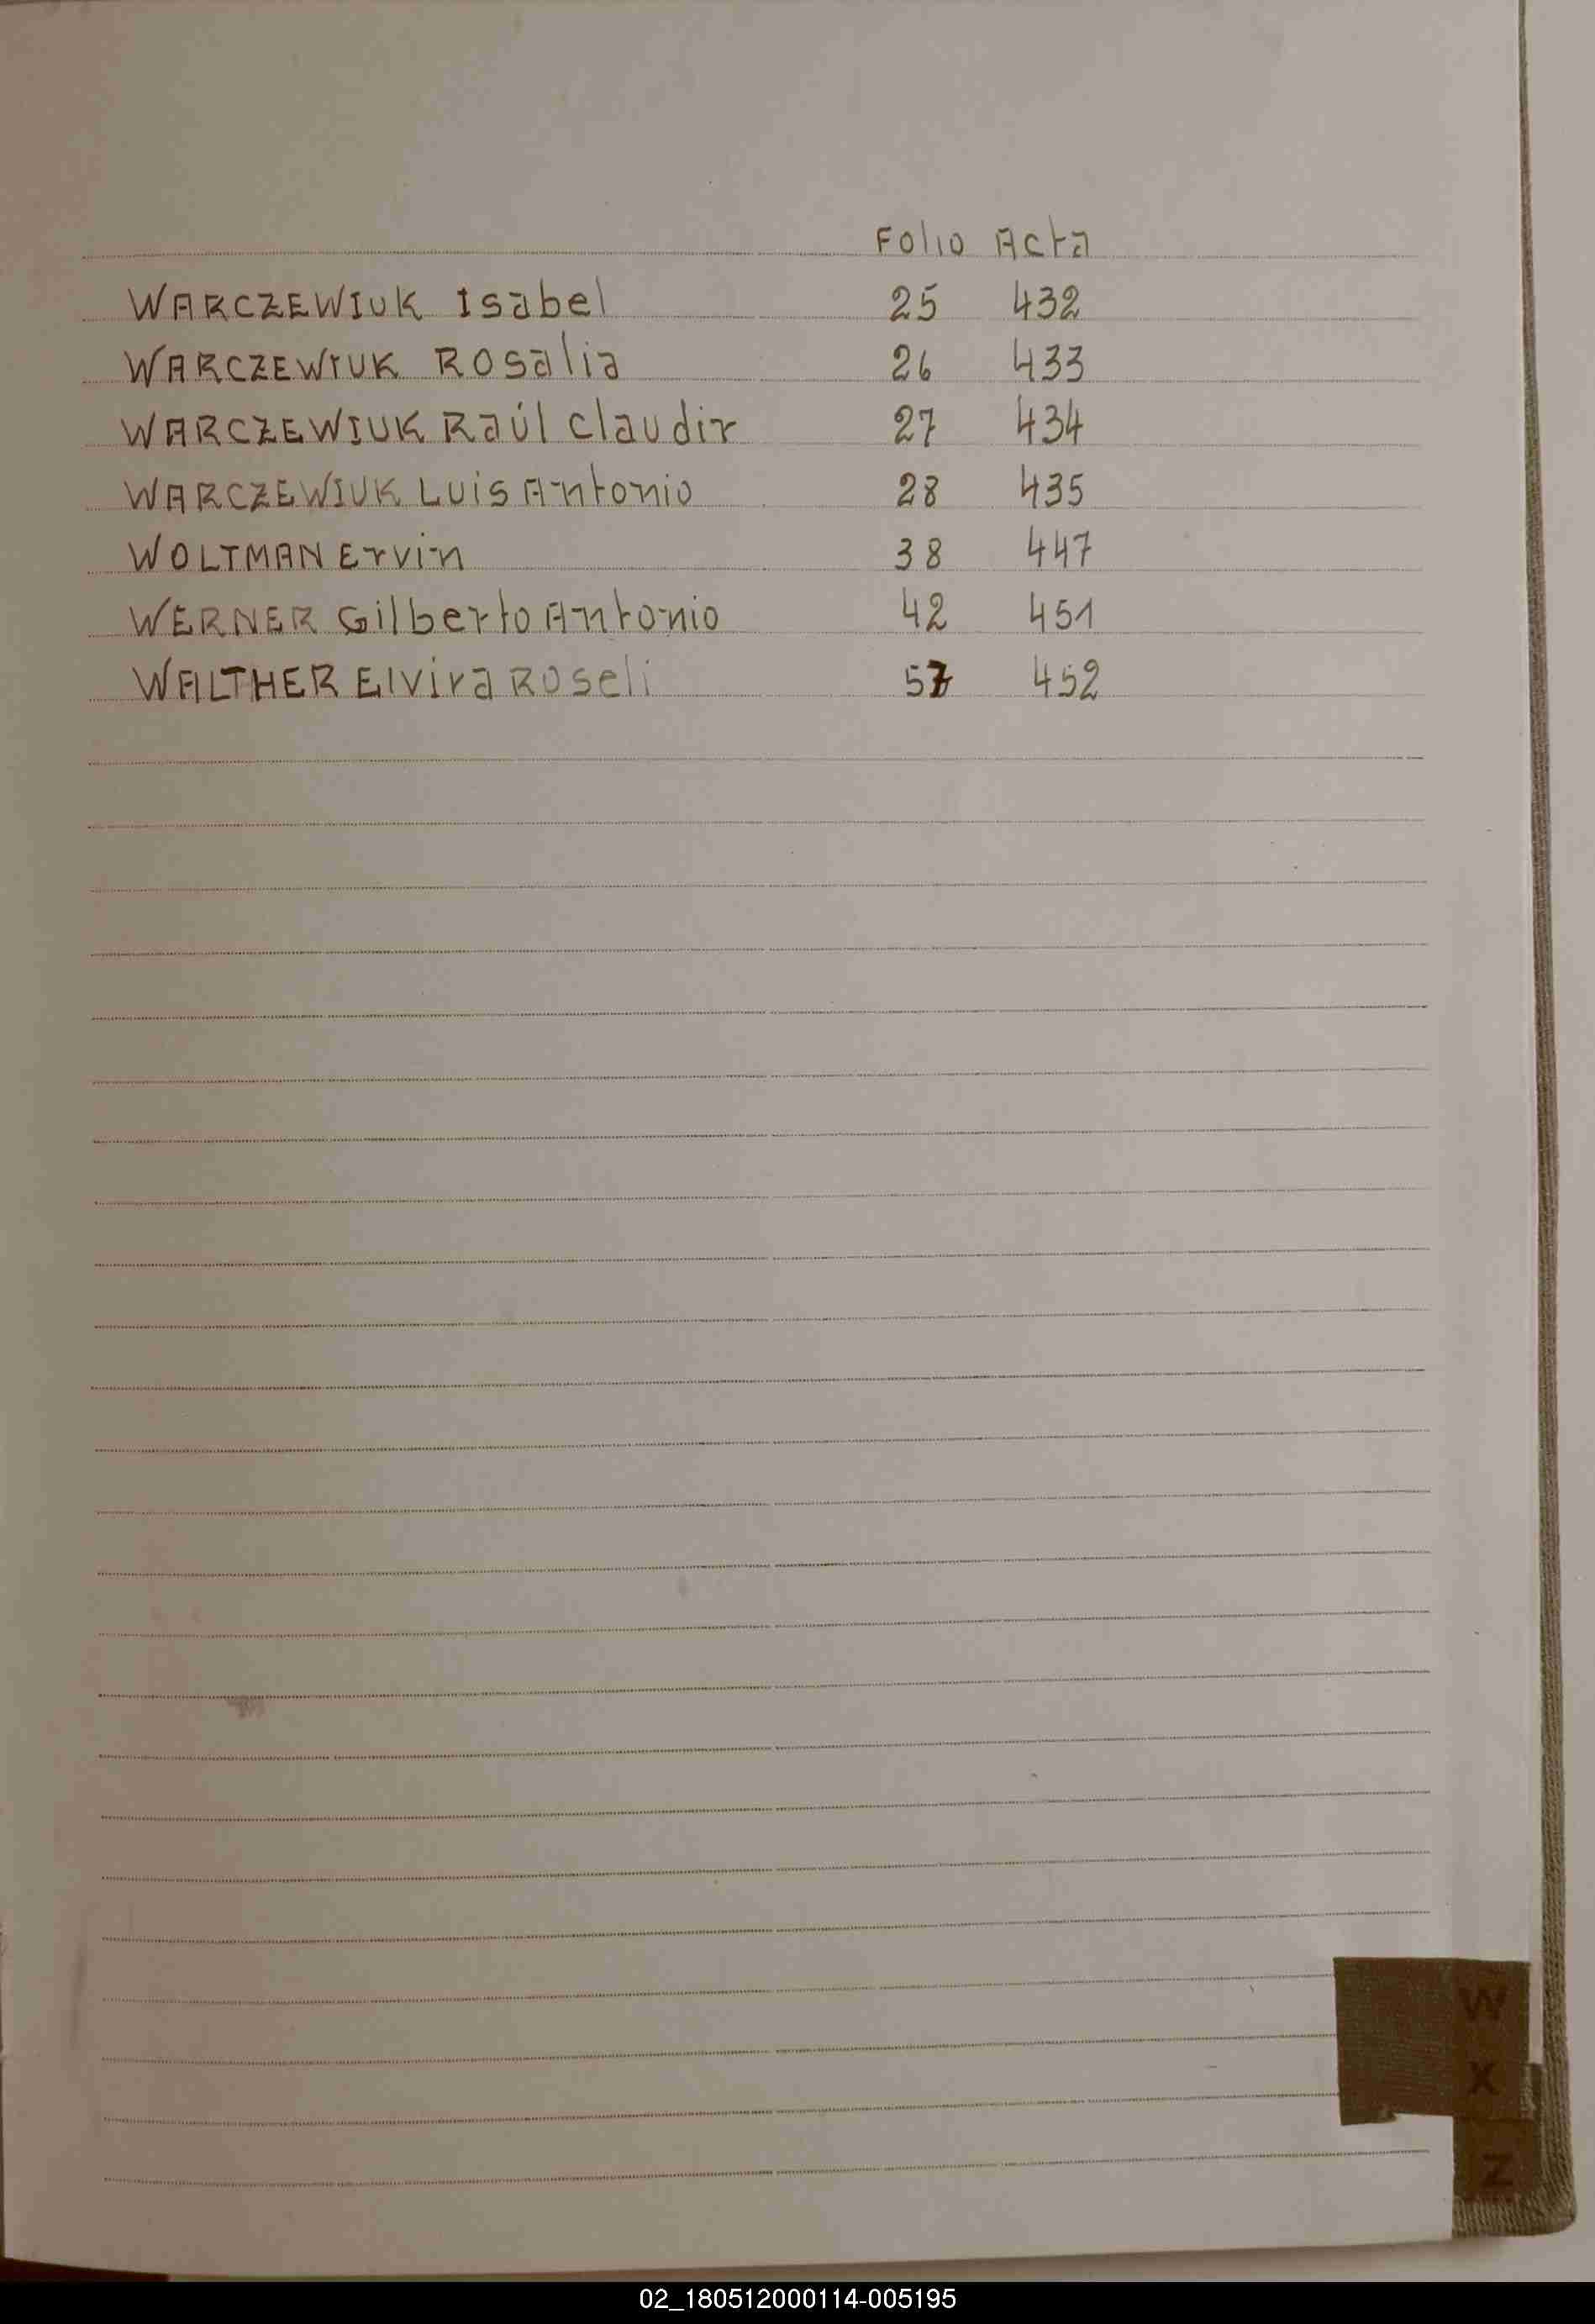 Folio Acta
WARCZEWIUK Isabel 25 432
WARCZEWIUK Rosalia 26 433
WARCZEWIUK Raúl Claudir 27 434
WARCZEWIUK Luis Antonio 28 435
WOLTMAN Ervin 38 447
WERNER Gilberto Antonio 42 451
WALTHER Elvira Roseli 452
W
X
Z
02_180512000114-005195